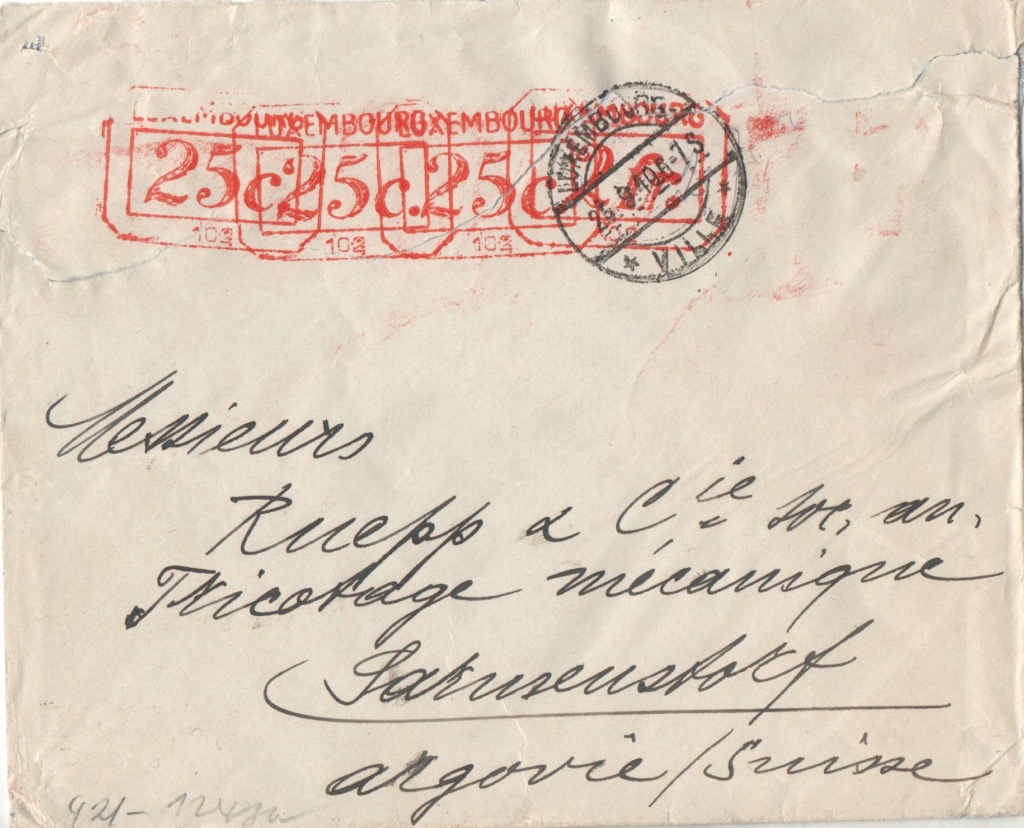 LUXEMBOURG LUXEMBOURG LUXEMBOURG LUXEMBOURG
25 c. 25 c. 25 c. 25 c.
102 102 102 102
LUXEMBOURG
VILLE
Messieurs
Ruepp & Cie soc. an.
Tricotage mécanique
Sarmenstorf
argovie / Suisse
421-